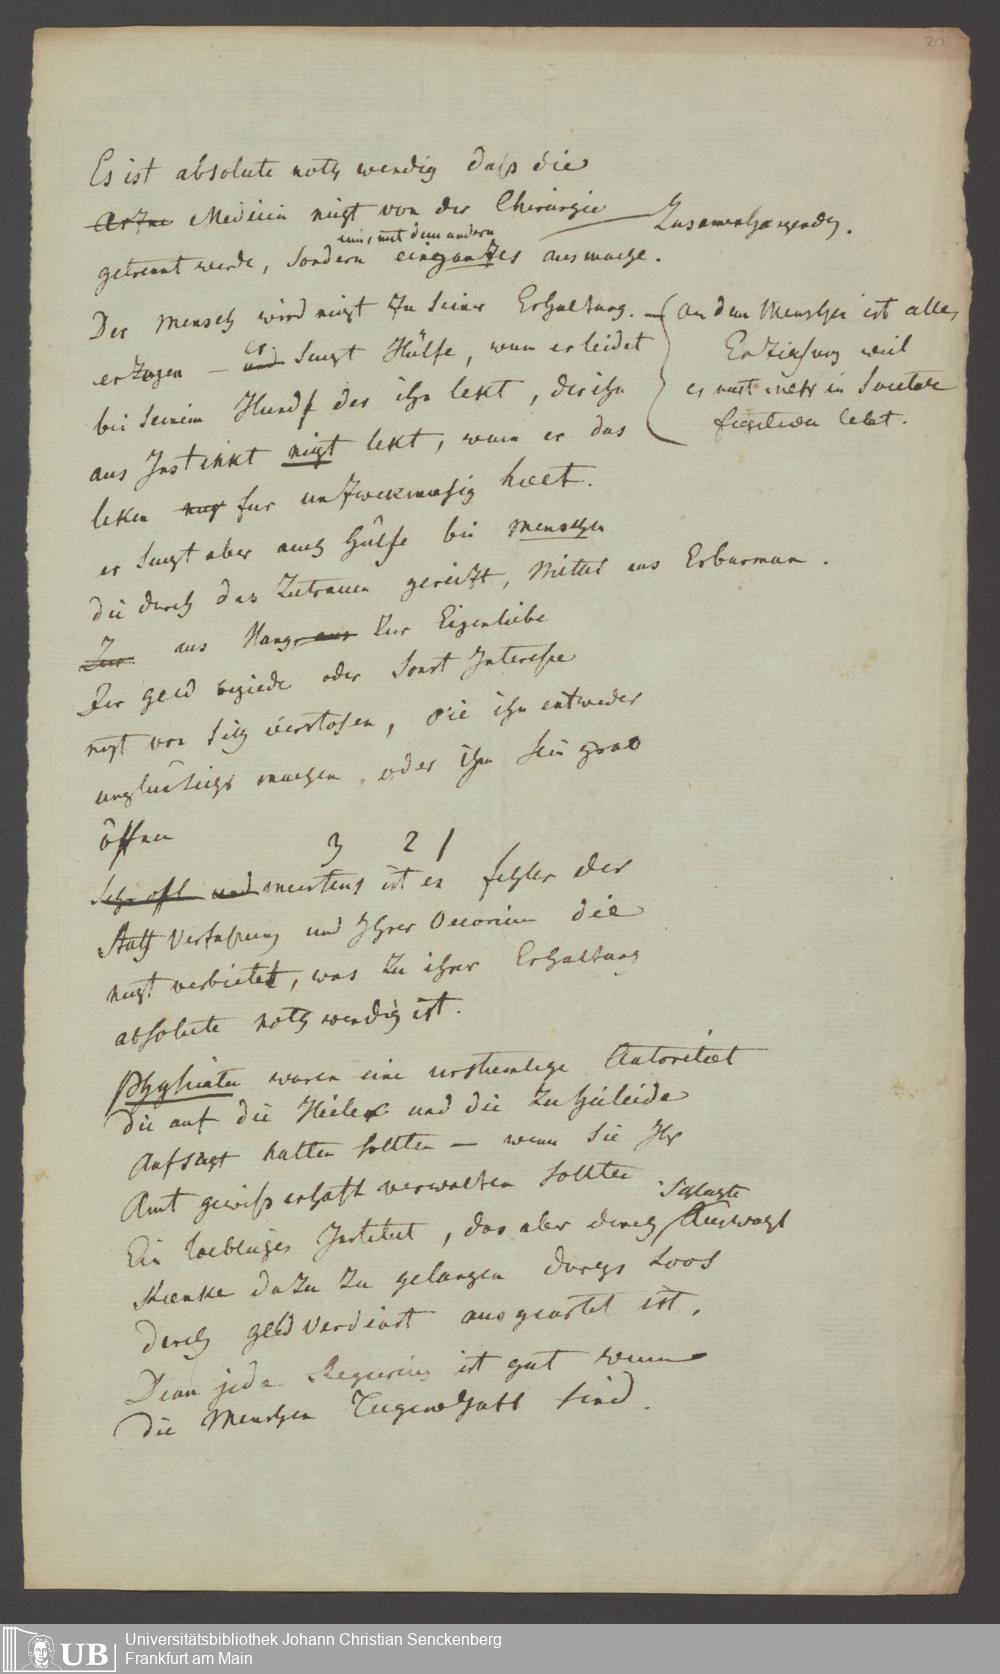 20
Es ist absolute nothwendig daß die
Arzne Medicin nicht von der Chirurgie
Zusamenhaengendh.
eins mit dem andern
getrennt werde, sondern ein ganzes ausmache.
Der mensch wird nicht zu seiner Erhaltung.
erzogen – und er sucht Hülfe, wenn er leidet
bei seinem Hund der ihn lekt, der ihn
aus Instinkt nicht lekt, wenn er das
leken nich fur unzwekmasig haelt.
an dem Menschen ist alles
Erziehung weil
er nicht mehr in
lebt.
er sucht aber auch Hülfe bei menschen
die durch das Zutrauen gereitzt, Mittel aus Erbarmen.
Zur aus Hang aus zur Eigenliebe
zur geld begiede oder sonst Interesse
nicht von sich verstosen, die ihn entweder
unglücklich machen, oder ihm sein grab
öffnen
3 2 1
Sehr oft und meistens ist es fehler der
Staats Verfassung und Ihrer Oeconomie die
nicht verbietet, was zu ihrer Erhaltung
absolute nothwendig ist.
Physicater waren eine Autoritaet
die auf die Heiler und die zu Heilende
Aufsicht halten sollten – wenn sie Ihr
Amt gewissenhaft verwalten sollten
Ein loebliches Institut, das aber durch schlechte Auswahl
Raenke dazu zu gelangen durchs Loos
durch geld verdienst ausgeartet ist.
Denn jede Regierung ist gut wenn
die Menschen Tugendhaft sind.
UB Universitätsbibliothek Johann Christian Senckenberg
Frankfurt am Main